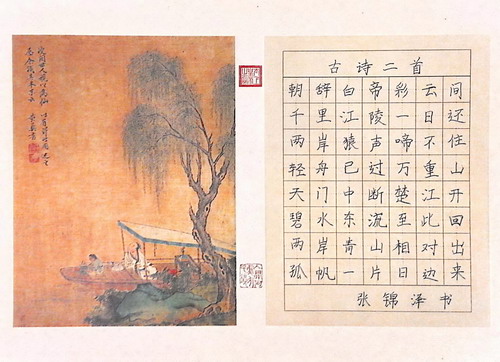 古诗二首
朝辞白帝彩云间
千里江陵一日还
两岸猿声啼不住
轻舟已过万重山
天门中断楚江开
碧水东流至此回
两岸青山相对出
孤帆一片日边来
张锦泽书